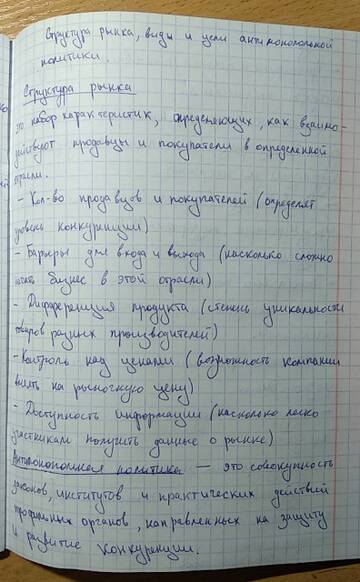 Структура рынка, виды и цели антимонопольной
политики.
Структура рынка
это набор характеристик, определяющих, как взаимо-
действуют продавцы и покупатели в определенной
отрасли.
- Кол-во продавцов и покупателей (определяет
уровень конкуренции)
- Барьеры для входа и выхода (насколько сложно
начать бизнес в этой отрасли)
- Дифференция продукта (степень уникальности
товаров разных производителей)
- Контроль над ценами (возможность компании
влиять на рыночную цену)
- Доступность информации (насколько легко
участникам получить данные о рынке)
Антимонопольная политика — это совокупность
законов, институтов и практических действий
органов, направленных на защиту
и развитие конкуренции.